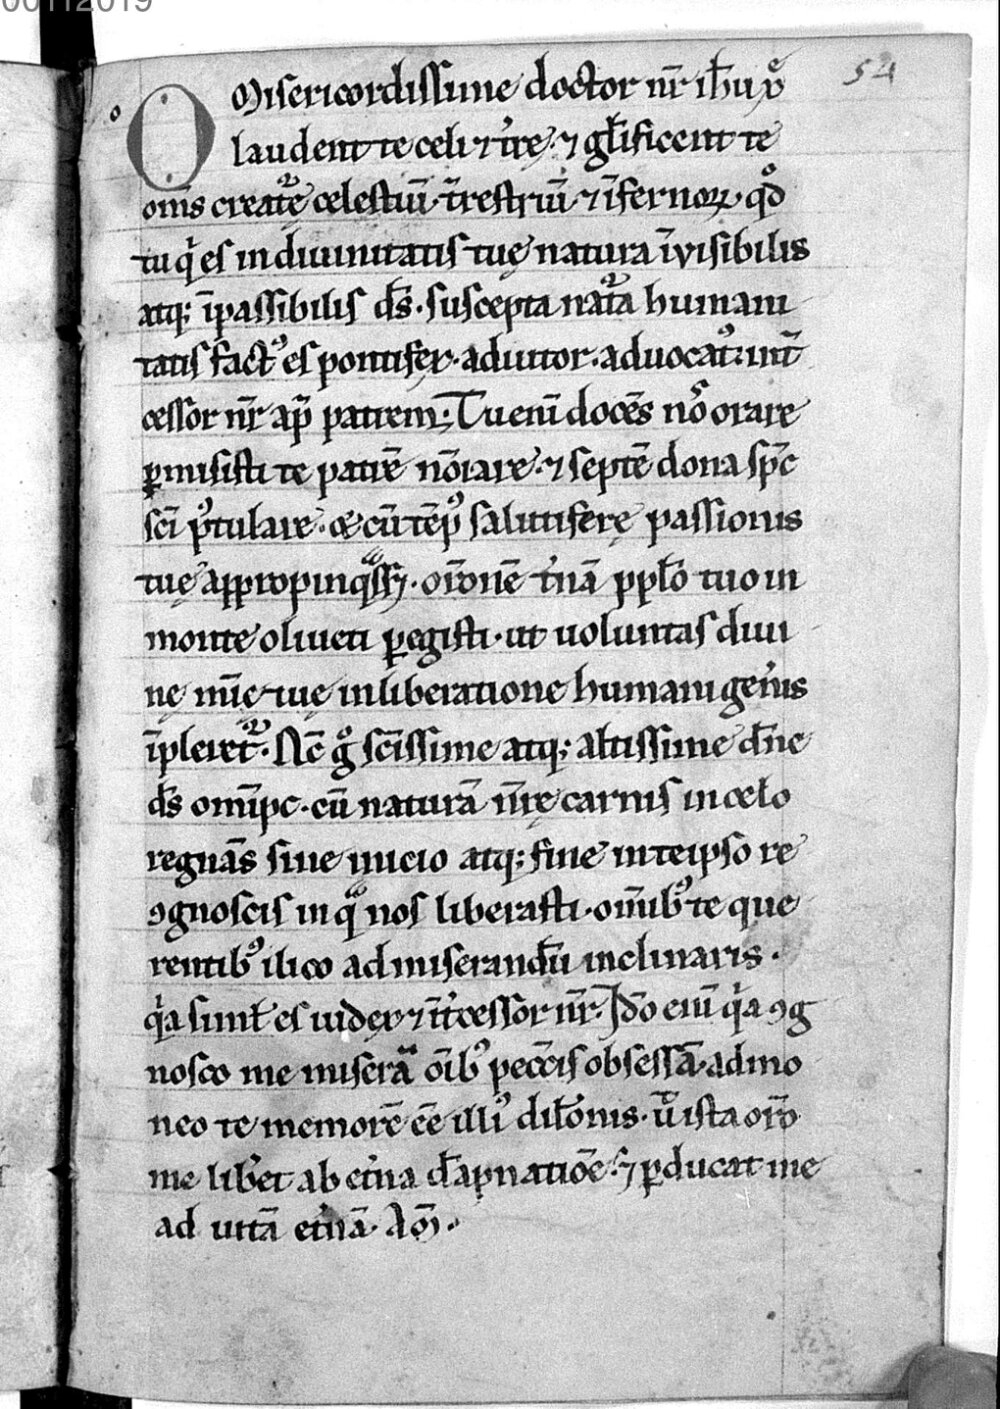 00112019
54
o
O Misericordissime doctor nr̄ ih̄u xp̄
laudent te celi ⁊ tr̄e· ⁊ gl̄ificent te
om̄s creatᷓe celestiū· tr̄estriū· ⁊ īfernoꝝ· qd̊
tu qͥ es in diuinitatis tuę natura īvisibilis
atq; īpassibilis ds̄· suscepta natᷓa humani
tatis factꝰ es pontifex· adiutor· aduocatꝰ· int̄
cessor nr̄ ap̄ patrem; Tu eni̅ docēs nos̊ orare
ꝑmisisti te patrē nōıare· ⁊ septē dona spc̄
sc̄i pꝰtulare· cū tēpꝰ salutiferę passionis
tuę appropinqᷓss&· or̄onē t'nā p pl̄o tuo in
monte oliueti ꝑegisti· ut uoluntas diui
nę mīę tuę in liberatione humani gen'is
īpleret᷑· Nc̄ g̊ sc̄issime atq; altissime dn̄e
ds̄ omīpc· cū naturā nr̄ę carnis in celo
regnās sine inicio atq; fine in teipso re
ꝯgnoscis in qᷓ nos liberasti· om̄ibꝰ te que
rentibꝰ ilico ad miserandū inclinaris·
qͥa siml̄ es iudex ⁊ īt'cessor nr̄· Ido̅ eni̅ qͥa ꝯg
nosco me miserā oīb' pecc̄is obsessā· admo
neo te memorē ēē illiꝰ dil̄onis· ut̄ ista or̄o
me lib'et ab et'na dāpnatiōe· ⁊ ꝑducat me
ad uitā et'nā· Am̄·